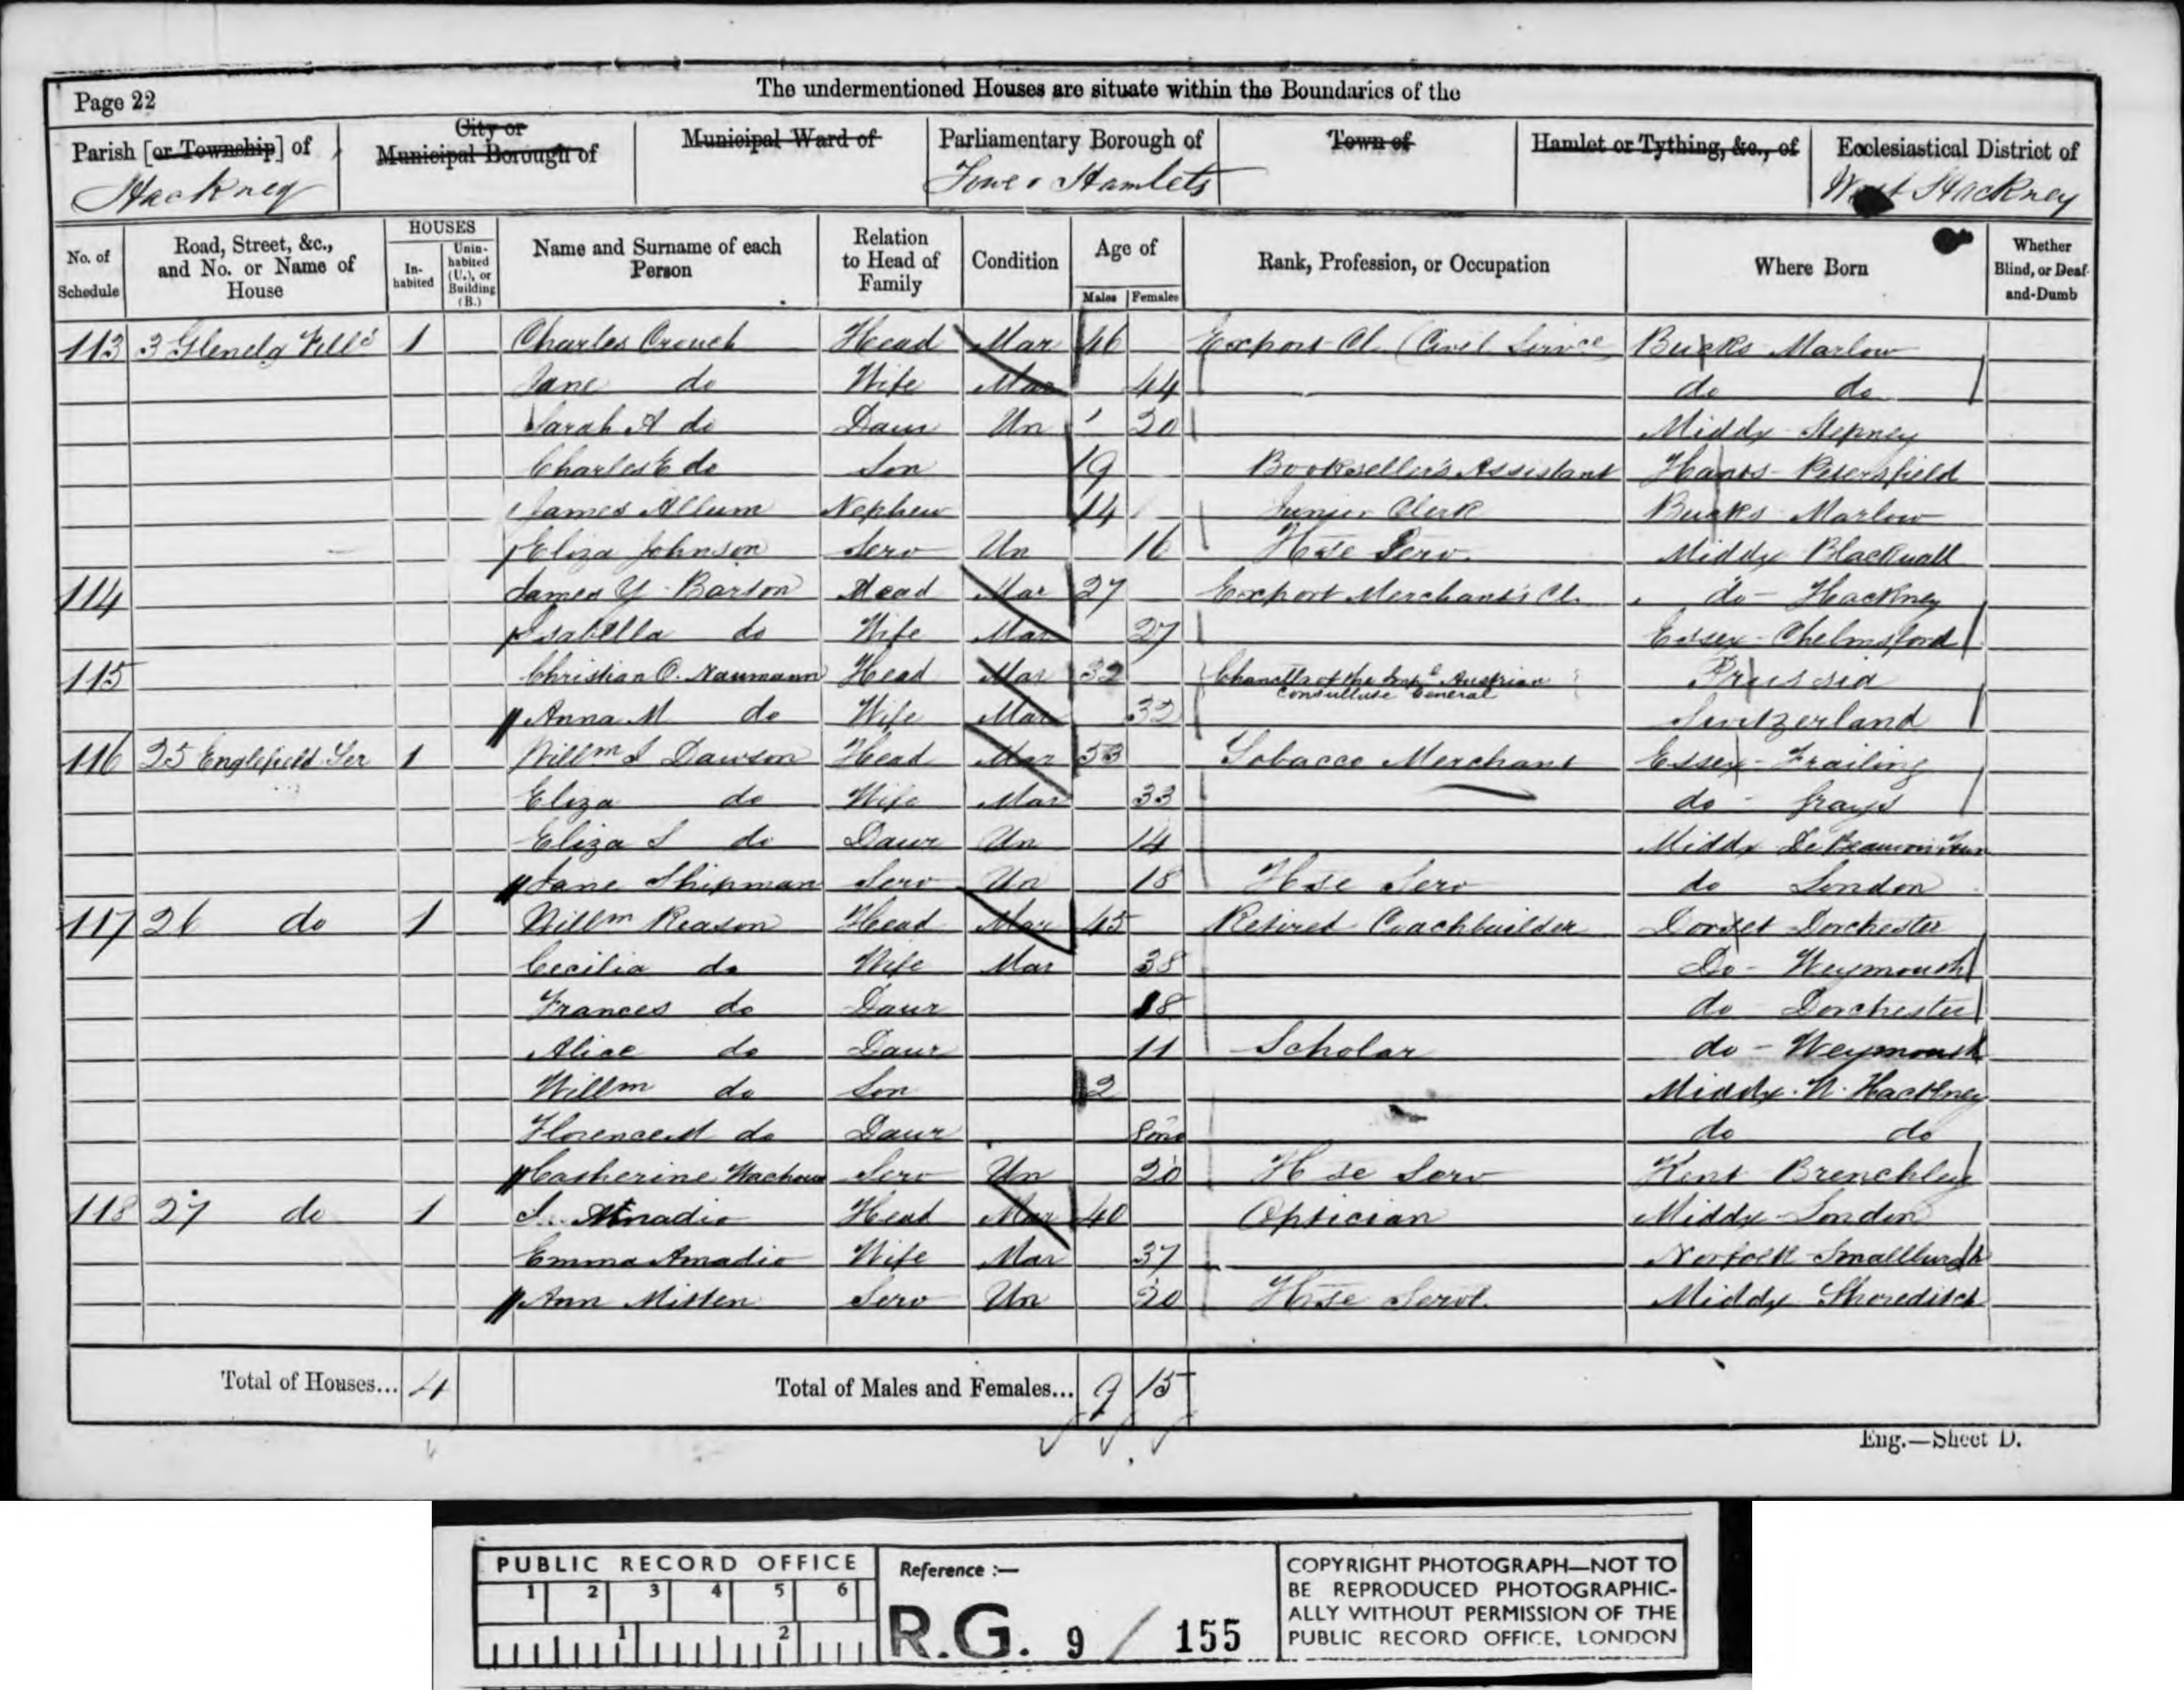 The undermentioned Houses are situate within the Boundaries of the
Page 22
Parish [or Township] of
Hackney
City or Municipal Borough of
Municipal Ward of
Parliamentary Borough of
Tower Hamlets
Town of
Hamlet or Tything, &c., of
Ecclesiastical District of
West Hackney
No. of Schedule
Road, Street, &c., and No. or Name of House
HOUSES
Inhabited
Uninhabited (U.), or Building (B.)
Name and Surname of each Person
Relation to Head of Family
Condition
Age of
Males
Females
Rank, Profession, or Occupation
Where Born
Whether Blind, or Deaf-and-Dumb
113 3 1 Charles Crouch Head Mar 46 Export Cl. (Civil Service Bucks Marlow
Jane do Wife Mar 44 do do
Sarah A do Daur Un 20 Middx Stepney
Charles E do Son 19 Bookseller's Assistant Hants Petersfield
James Allum Nephew 14 Junior Clerk Bucks Marlow
Eliza Johnson Serv Un 16 Hse Serv. Middx Blackwall
114 James Y Barton Head Mar 27 Export Merchant's Cl. do - Hackney
Isabella do Wife Mar 27 Essex - Chelmsford
115 Christian O. Naumann Head Mar 32 of the Austrian General Prussia
Anna M do Wife Mar 32 Switzerland
116 25 Englefield Ter 1 Willm S Dawson Head Mar 53 Tobacco Merchant Essex -
Eliza do Wife Mar 33 do - Grays
Eliza S do Daur Un 14 Middx
Jane Shipman Serv Un 18 Hse Serv do London
117 26 do 1 Willm Reason Head Mar 45 Retired Coachbuilder Dorset Dorchester
Cecilia do Wife Mar 38 Do - Weymouth
Frances do Daur 18 do - Dorchester
Alice do Daur 11 Scholar do - Weymouth
Willm do Son 2 Middx. W. Hackney
Florence M do Daur 8mo do do
Catherine Serv Un 20 Hse Serv Kent Brenchley
118 27 do 1 Amadio Head Mar 40 Optician Middx London
Emma Amadio Wife Mar 37 Norfolk Smallburgh
Ann Mitten Serv Un 20 Hse Servt. Middx Shoreditch
Total of Houses... 4
Total of Males and Females... 9 15
Eng.—Sheet D.
PUBLIC RECORD OFFICE
1 2 3 4 5 6
1 2
Reference :—
R.G. 9 / 155
COPYRIGHT PHOTOGRAPH—NOT TO
BE REPRODUCED PHOTOGRAPHIC-
ALLY WITHOUT PERMISSION OF THE
PUBLIC RECORD OFFICE, LONDON